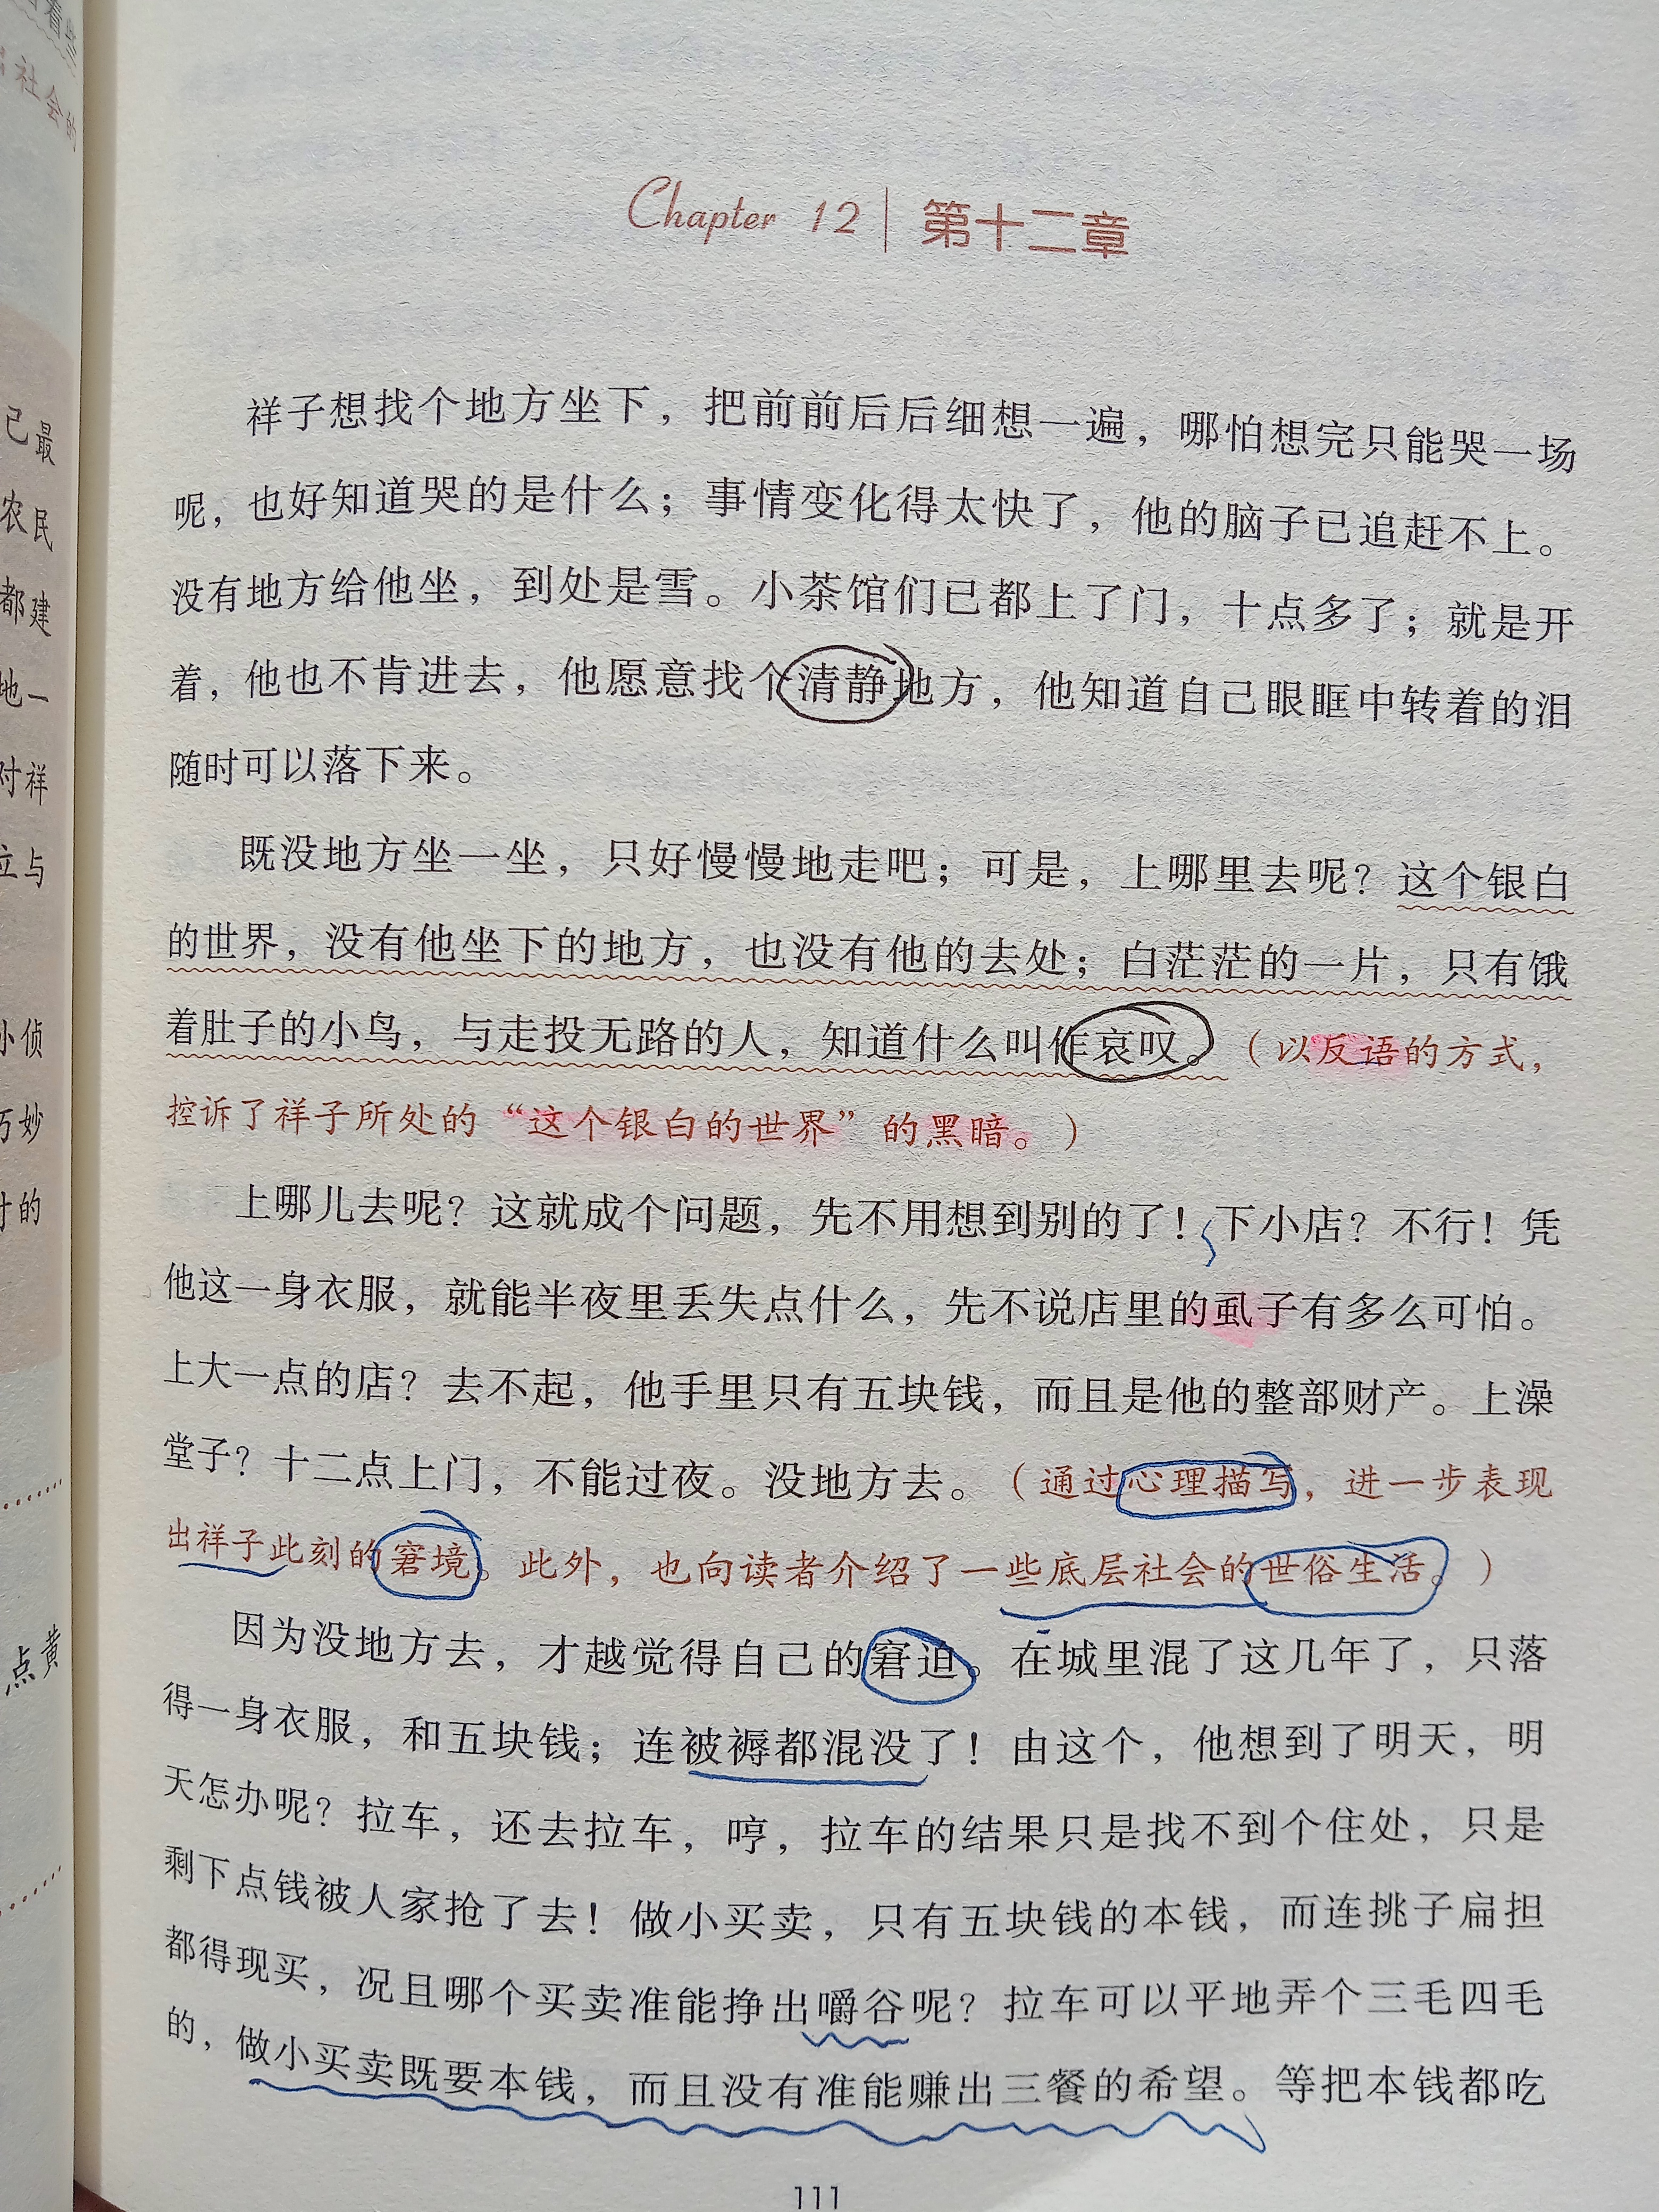 Chapter 12 | 第十二章
祥子想找个地方坐下，把前前后后细想一遍，哪怕想完只能哭一场
呢，也好知道哭的是什么；事情变化得太快了，他的脑子已追赶不上。
没有地方给他坐，到处是雪。小茶馆们已都上了门，十点多了；就是开
着，他也不肯进去，他愿意找个清静地方，他知道自己眼眶中转着的泪
随时可以落下来。
既没地方坐一坐，只好慢慢地走吧；可是，上哪里去呢？这个银白
的世界，没有他坐下的地方，也没有他的去处；白茫茫的一片，只有饿
着肚子的小鸟，与走投无路的人，知道什么叫作哀叹。（以反语的方式，
控诉了祥子所处的“这个银白的世界”的黑暗。）
上哪儿去呢？这就成个问题，先不用想到别的了！下小店？不行！凭
他这一身衣服，就能半夜里丢失点什么，先不说店里的虱子有多么可怕。
上大一点的店？去不起，他手里只有五块钱，而且是他的整部财产。上澡
堂子？十二点上门，不能过夜。没地方去。（通过心理描写，进一步表现
出祥子此刻的窘境。此外，也向读者介绍了一些底层社会的世俗生活。）
因为没地方去，才越觉得自己的窘迫。在城里混了这几年了，只落
得一身衣服，和五块钱；连被褥都混没了！由这个，他想到了明天，明
天怎办呢？拉车，还去拉车，哼，拉车的结果只是找不到个住处，只是
剩下点钱被人家抢了去！做小买卖，只有五块钱的本钱，而连挑子扁担
都得现买，况且哪个买卖准能挣出嚼谷呢？拉车可以平地弄个三毛四毛
的，做小买卖既要本钱，而且没有准能赚出三餐的希望。等把本钱都吃
111
社会的
已最
农民
都建
地一
对祥
立与
小侦
巧妙
时的
点黄